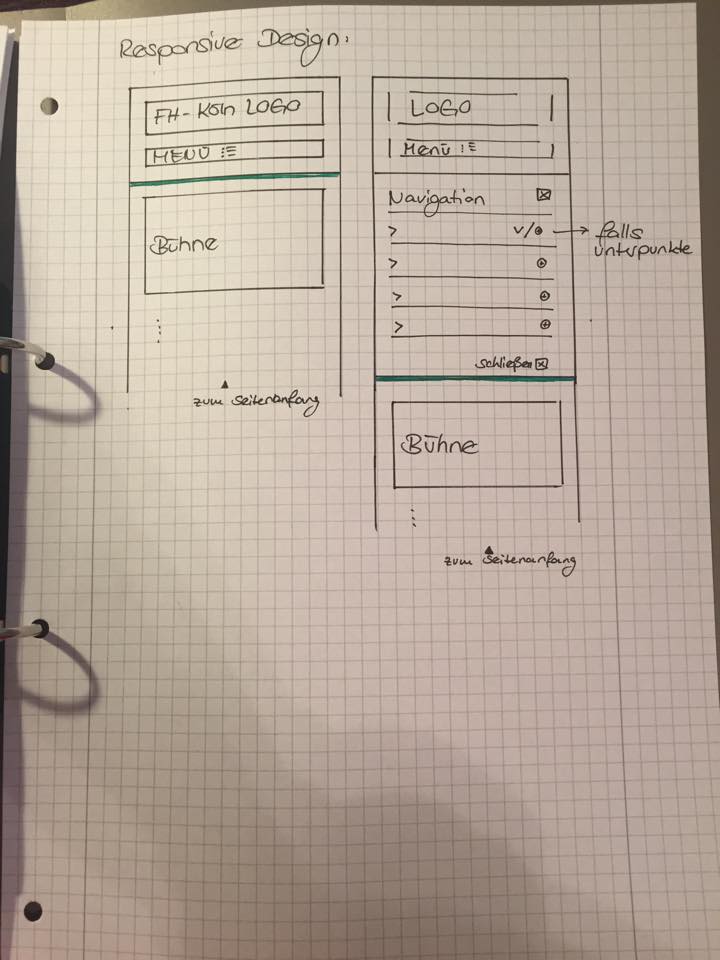 Responsive Design:
FH-Köln LOGO
MENÜ
Bühne
zum Seitenanfang
LOGO
Menü
Navigation
> v/
falls
unterpunkte
>
>
>
schließen
Bühne
zum Seitenanfang